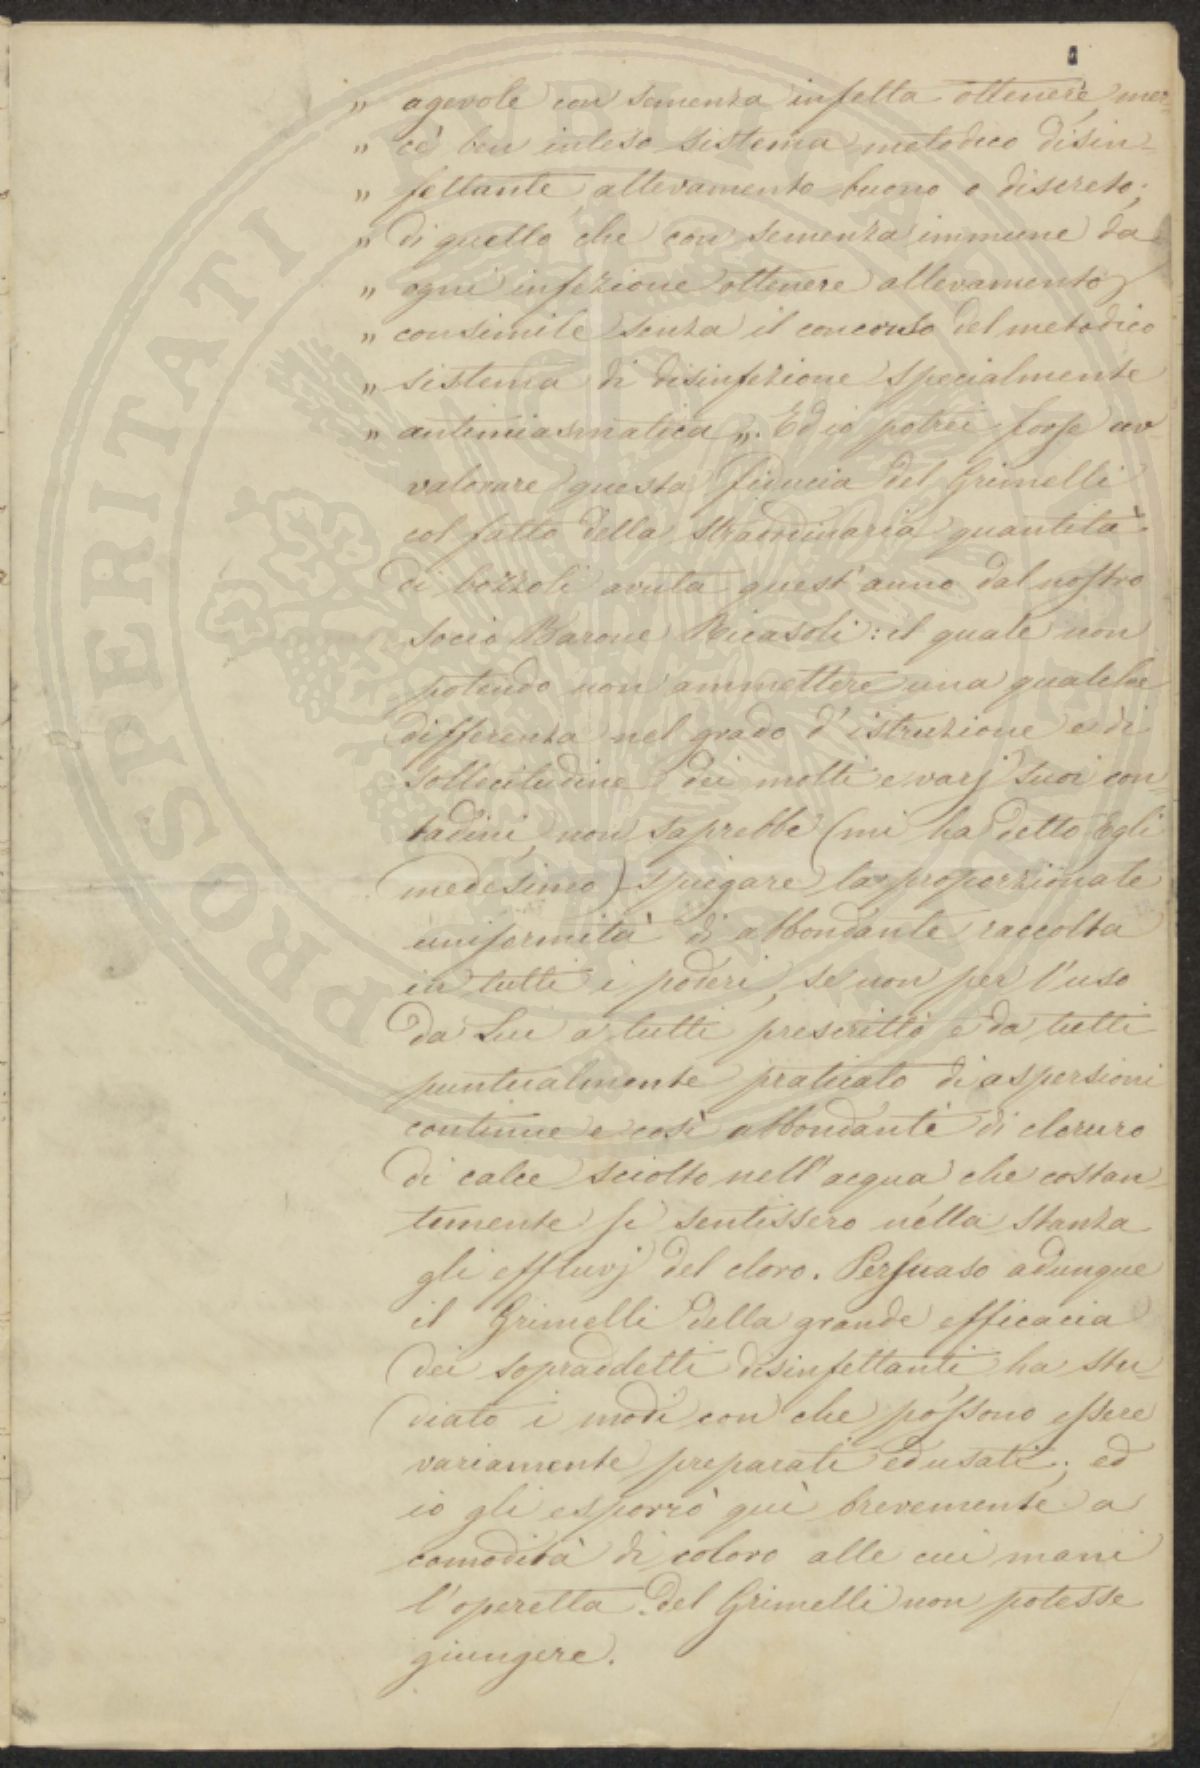 „ agevole con semenza infetta ottenere, mer-
„ cè ben inteso sistema metodico disin-
„ fettante, allevamento buono o discreto;
„ di quello che con semenza immune da
„ ogni infezione ottenere allevamento
„ consimile senza il concorso del metodico
„ sistema di disinfezione specialmente
„ antimiasmatica „. Ed io potrei forse av-
valorare questa fiducia del Grimelli
col fatto della straordinaria quantità
di bozzoli avuta quest'anno dal nostro
socio Barone Ricasoli: il quale non
potendo non ammettere una qualche
differenza nel grado d'istruzione e di
sollecitudine dei molti e varj suoi con-
tadini, non saprebbe (mi ha detto Egli
medesimo) spiegare la proporzionale
uniformità di abbondante raccolta
in tutti i poderi, se non per l'uso
da Lui a tutti prescritto e da tutti
puntualmente praticato di aspersioni
continue e così abbondanti di cloruro
di calce sciolto nell'acqua, che costan-
temente si sentissero nella stanza
gli effluvj del cloro. Persuaso adunque
il Grimelli della grande efficacia
dei sopraddetti disinfettanti, ha stu-
diato i modi con che possono essere
variamente preparati ed usati; ed
io gli esporrò quì brevemente a
comodità di coloro alle cui mani
l'operetta del Grimelli non potesse
giungere.
PROSPERITATI PUBLICAE